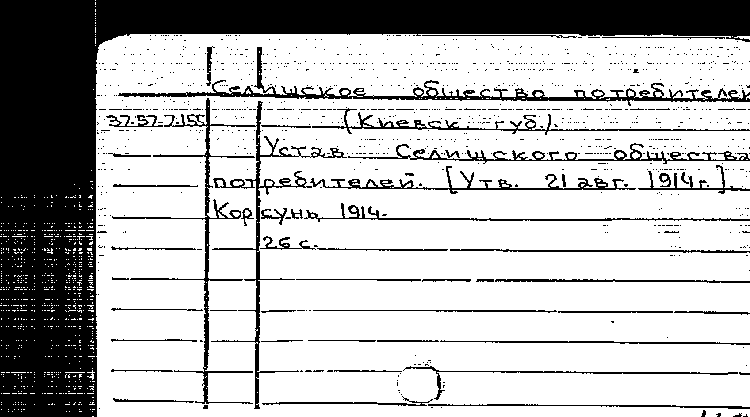 Селищское общество потребителей
37-57-7.155 (Киевск. губ.).
Устав Селищского общества
потребителей. [Утв. 21 авг. 1914г.].
Корсунь, 1914.
26 с.